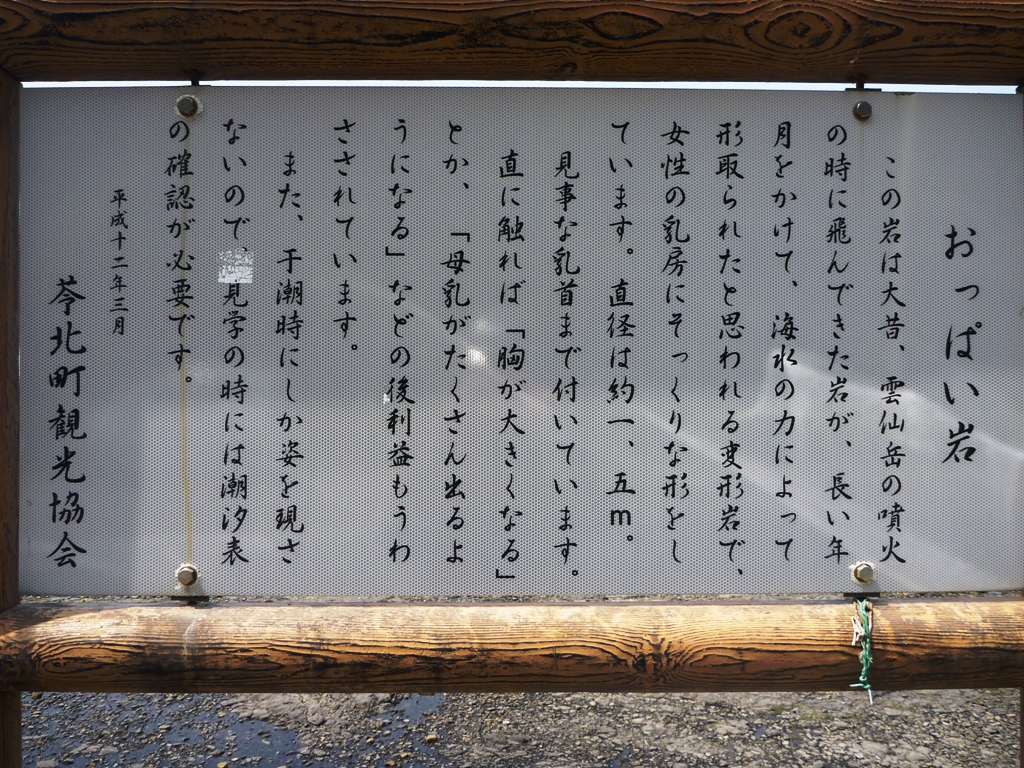 おっぱい岩
この岩は大昔、雲仙岳の噴火
の時に飛んできた岩が、長い年
月をかけて、海水の力によって
形取られたと思われる変形岩で、
女性の乳房にそっくりな形をし
ています。直径は約一、五m。
見事な乳首まで付いています。
直に触れば「胸が大きくなる」
とか、「母乳がたくさん出るよ
うになる」などの後利益もうわ
さされています。
また、干潮時にしか姿を現さ
ないので、見学の時には潮汐表
の確認が必要です。
平成十二年三月
苓北町観光協会